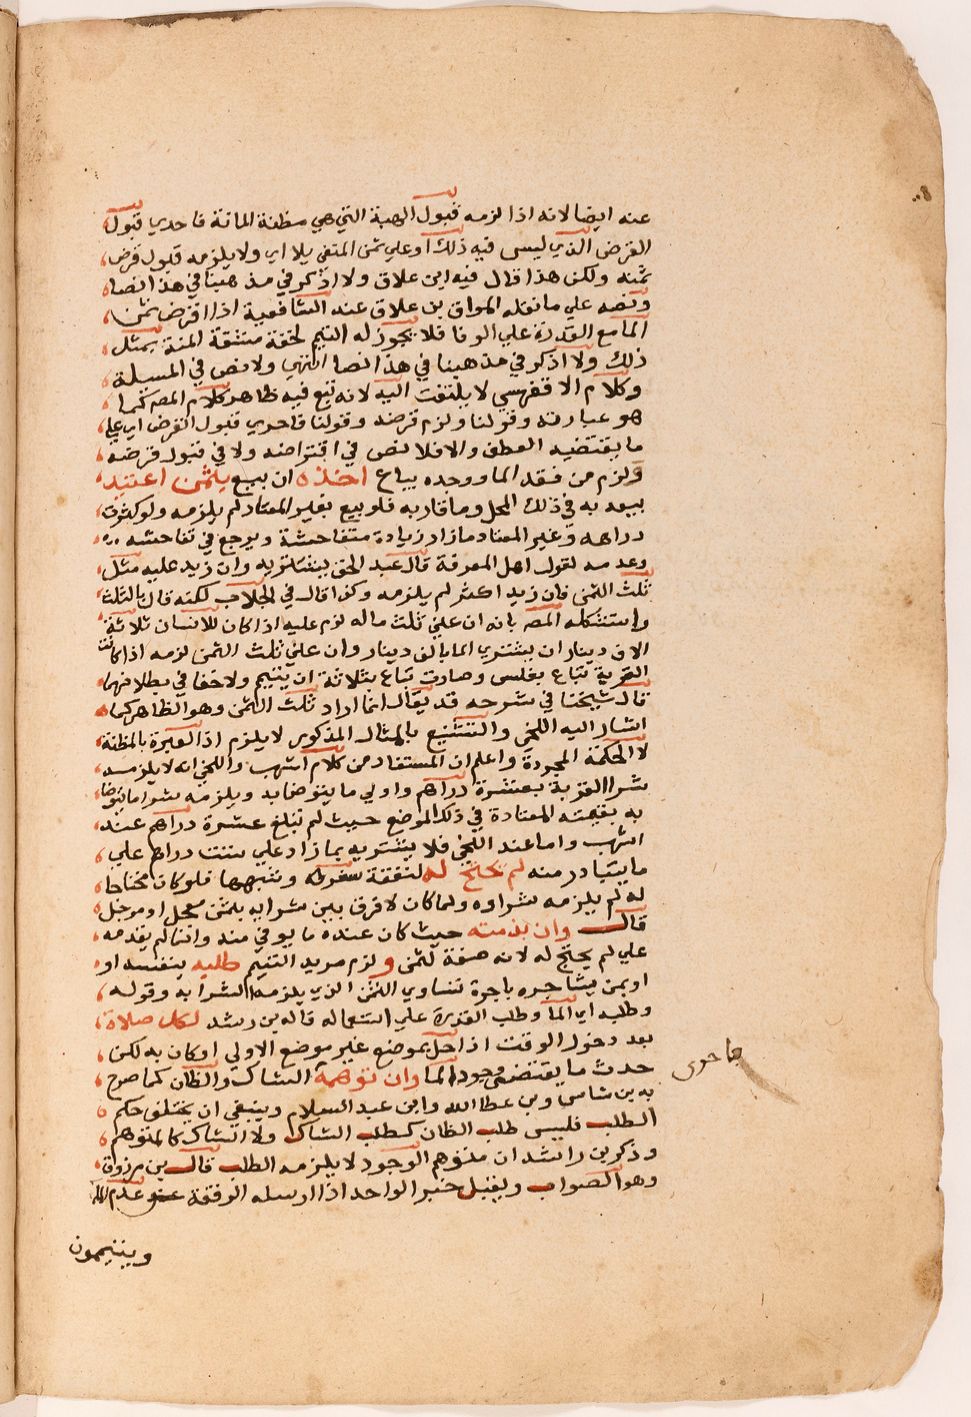 عنه ايضا لانه اذا لزمه قبول الهبة التي هي مظنة المانة فاحدي قبول
القرض الذي ليس فيه ذلك او علي ثمن المتفي يلا اي ولا يلزمه قبول قرض
ثمنه ولكن هذا قال فيه ابن علاق ولا اذكر في مذهبنا في هذا نصا
ونصه علي ما نقله المواق بن علاق عند الشافعية اذا اقرض ثمن
الما مع القدرة علي الوفا فلا يجوز له التيمم لخفة مشقة المنة بمثل
ذلك ولا اذكر في مذهبنا في هذا نصا انتهي ولا نص في المسيلة
وكلام الاقفهسي لا يلتفت اليه لانه تبع فيه ظاهر كلام المص كما
هو عبارته وقولنا ولزم قرضه وقولنا فاحري قبول القرض اي علي
ما يقتضيه العطف والا فلا نص في اقتراضه ولا في قبول قرضه
ولزم من فقد الما ووجده يباع اخذه ان بيع بثمن اعتيد
بيعه به في ذلك المحل وما قاربه فلو بيع بغير المعتاد لم يلزمه ولو كثرت
دراهمه وغير المعتاد ما زاد زيادة متفاحشة ويرجع في تفاحشه
وعدمه لقول اهل المعرفة قال عبد الحق يشتريه وان زيد عليه مثل
ثلث الثمن فان زيد اكثر لم يلزمه وكذا قال في الجلاب لكنه قال بالثلث
واستشكله المص بانه ان عني ثلث ماله لزم عليه اذا كان للانسان ثلاثة
الاف دينار ان يشتري الما بالف دينار وان عني ثلث الثمن لزمه اذا كانت
القربة تباع بفلس وصارت تباع بثلاثة ان يتيمم ولا خفا في بطلانهما
قال شيخنا في شرحه قد يقال انما اراد ثلث الثمن وهو الظاهر كما
اشار اليه اللخمي والتشنيع بالمثال المذكور لا يلزم اذ العبرة بالمظنة
لا الحكمة المجردة واعلم ان المستفاد من كلام اشهب واللخمي انه لا يلزمه
شرا القربة بعشرة دراهم واولي ما يتوضا به ويلزمه شرا ما يتوضا
به بقيمته المعتادة في ذلك الموضع حيث لم تبلغ عشرة دراهم عند
اشهب واما عند اللخمي فلا يشتريه بما زاد علي ستت دراهم علي
ما يتبادر منه لم يحتج له لنفقة سفره ونحوها فلو كان محتاجا
له لم يلزمه شراوه ولما كان لا فرق بين شرايه بثمن معجل او موجل
قال وان بذمته حيث كان عنده ما يوفي منه وانما لم يقدمه
علي لم يحتج له لانه صفة لثمن ولزم مريد التيمم طلبه بنفسه او
او بمن يشاجره باجرة تساوي الثمن الذي يلزمه الشرا به وقوله
وطلبه اي الما وطلب القدرة علي استعماله قاله بن رشد لكل صلاة
بعد دخول الوقت اذا حل بموضع غير موضع الاولي او كان به لكن
حدث ما يقتضي وجود الما وان توهمه الشاك والظان كما صرح
به بن شاس وبن عطا الله وابن عبد السلام وينبغي ان يختلف حكم
الطلب فليس طلب الظان كطلب الشاك ولا الشاك كالمتوهم
وذكر بن راشد ان متوهم الوجود لا يلزمه الطلب قال بن مرزوق
وهو الصواب ويقبل خبر الواحد اذا ارسله الرفقة عدم الما
ويتيممون
فاحرى